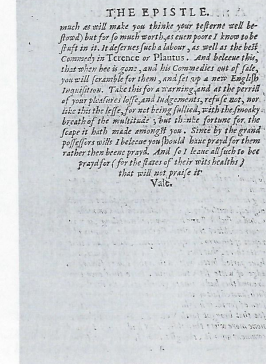 THE EPISTLE.
much as will make you thinke your testerne well be-
stowd) but for so much worth, as euen poore I know to be
stuft in it. It deserues such a labour, as well as the best
Commedy in Terence or Plautus. And beleeue this,
that when hee is gone, and his Commedies out of sale,
you will scramble for them, and set vp a new English
Inquisition. Take this for a warning, and at the perrill
of your pleasures losse, and Iudgements, refuse not, nor
like this the lesse, for not being sullied, with the smoaky
breath of the multitude; but thanke fortune for the
scape it hath made amongst you. Since by the grand
possessors wills I beleeue you should haue prayd for them
rather then beene prayd. And so I leaue all such to bee
prayd for (for the states of their wits healths)
that will not praise it
Vale.